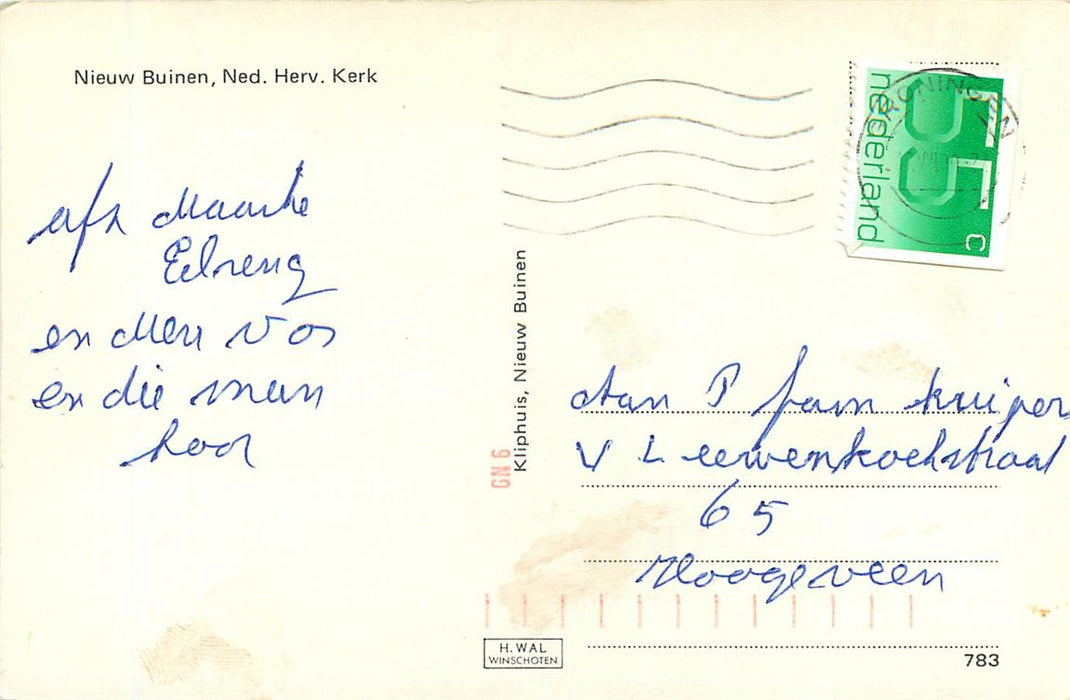 Nieuw Buinen, Ned. Herv. Kerk
afz Maarke
en Mevr Vos
en die man
hoor
Kliphuis, Nieuw Buinen
GN6
GRONINGEN
nederland
55 c
Aan P fam kuiper
V Leeuwenhoekstraat
65
Hoogeveen
H. WAL
WINSCHOTEN
783